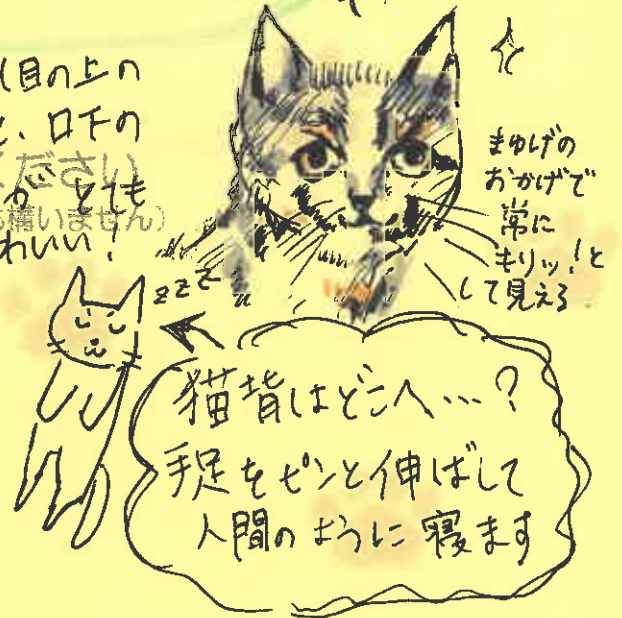 (目の上の
と、口下の
ください
がとても
構いません)
わいい!
まゆげの
おかげで
常に
キリッ!と
して見える
zzz
猫背はどこへ…?
手足をピンと伸ばして
人間のように寝ます